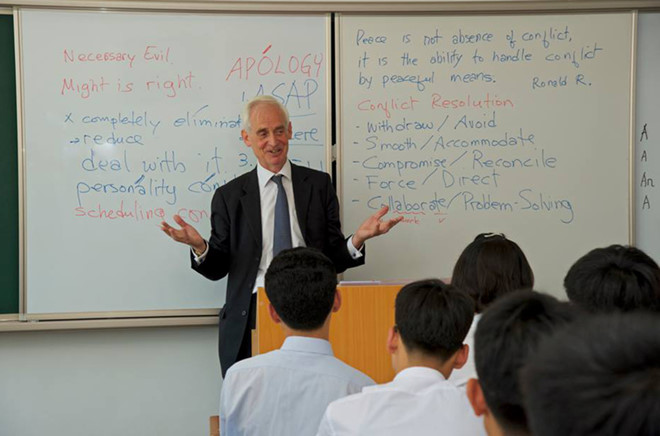 Necessary Evil
Might is right
APÓLOGY
ASAP
x completely
→ reduce
deal with it 3.
personality
scheduling
Peace is not absence of conflict,
it is the ability to handle conflict
by peaceful means. Ronald R.
Conflict Resolution
- Withdraw/Avoid
- Smooth/Accommodate
- Compromise/Reconcile
- Force/Direct
- Collaborate/Problem-Solving
A
A
An
A